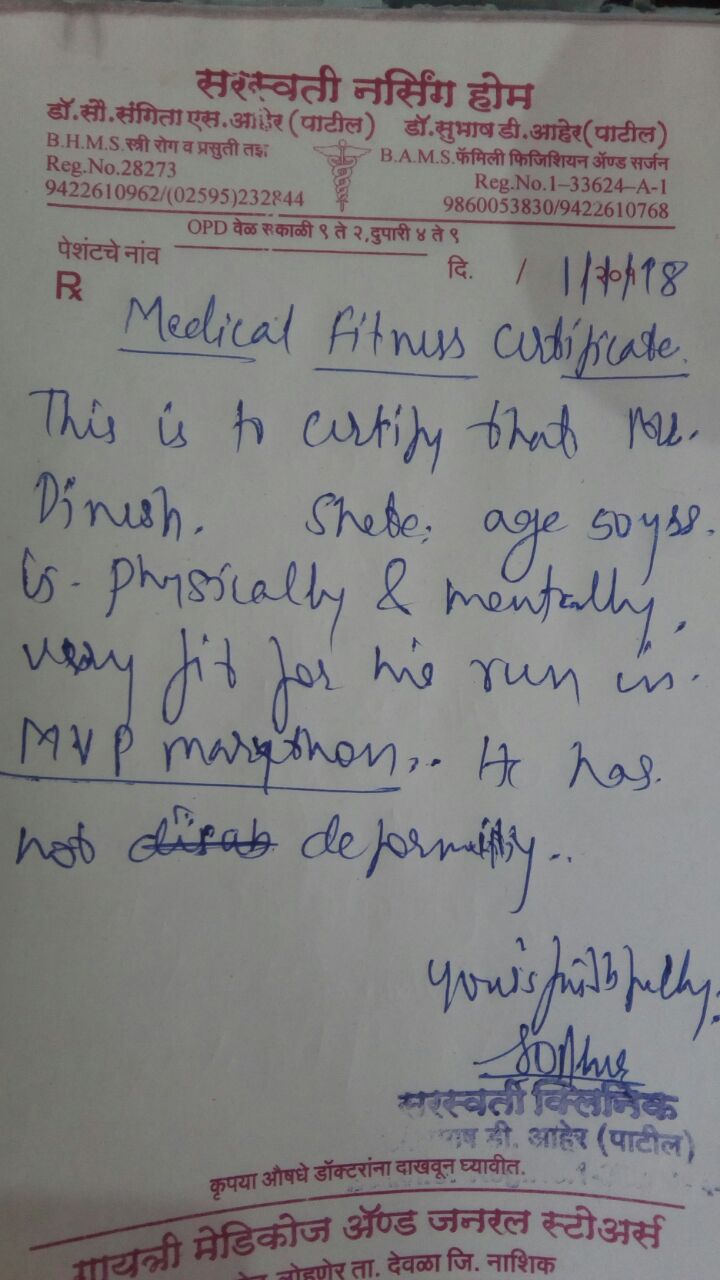 सरस्वती नर्सिंग होम
डॉ.सौ.संगिता एस.आहेर (पाटील) डॉ.सुभाष डी.आहेर(पाटील)
B.H.M.S.स्त्री रोग व प्रसुती तज्ञ B.A.M.S.फॅमिली फिजिशियन ॲण्ड सर्जन
Reg.No.28273 Reg.No.1-33624-A-1
9422610962/(02595)232844 9860053830/9422610768
OPD वेळ सकाळी ९ ते २,दुपारी ४ ते ९
पेशंटचे नांव दि. /
Rx
Medical Fitness Certificate.
This is to certify that Mr.
Dinesh. Shete, age 50 yrs.
is physically & mentally,
very fit for his run in.
MVP marathon,.. He has.
not deformity..
your's faithfully,
सरस्वती क्लिनिक
डी. आहेर (पाटील)
कृपया औषधे डॉक्टरांना दाखवून घ्यावीत.
गायत्री मेडिकोज ॲण्ड जनरल स्टोअर्स
लोहणेर ता. देवळा जि. नाशिक